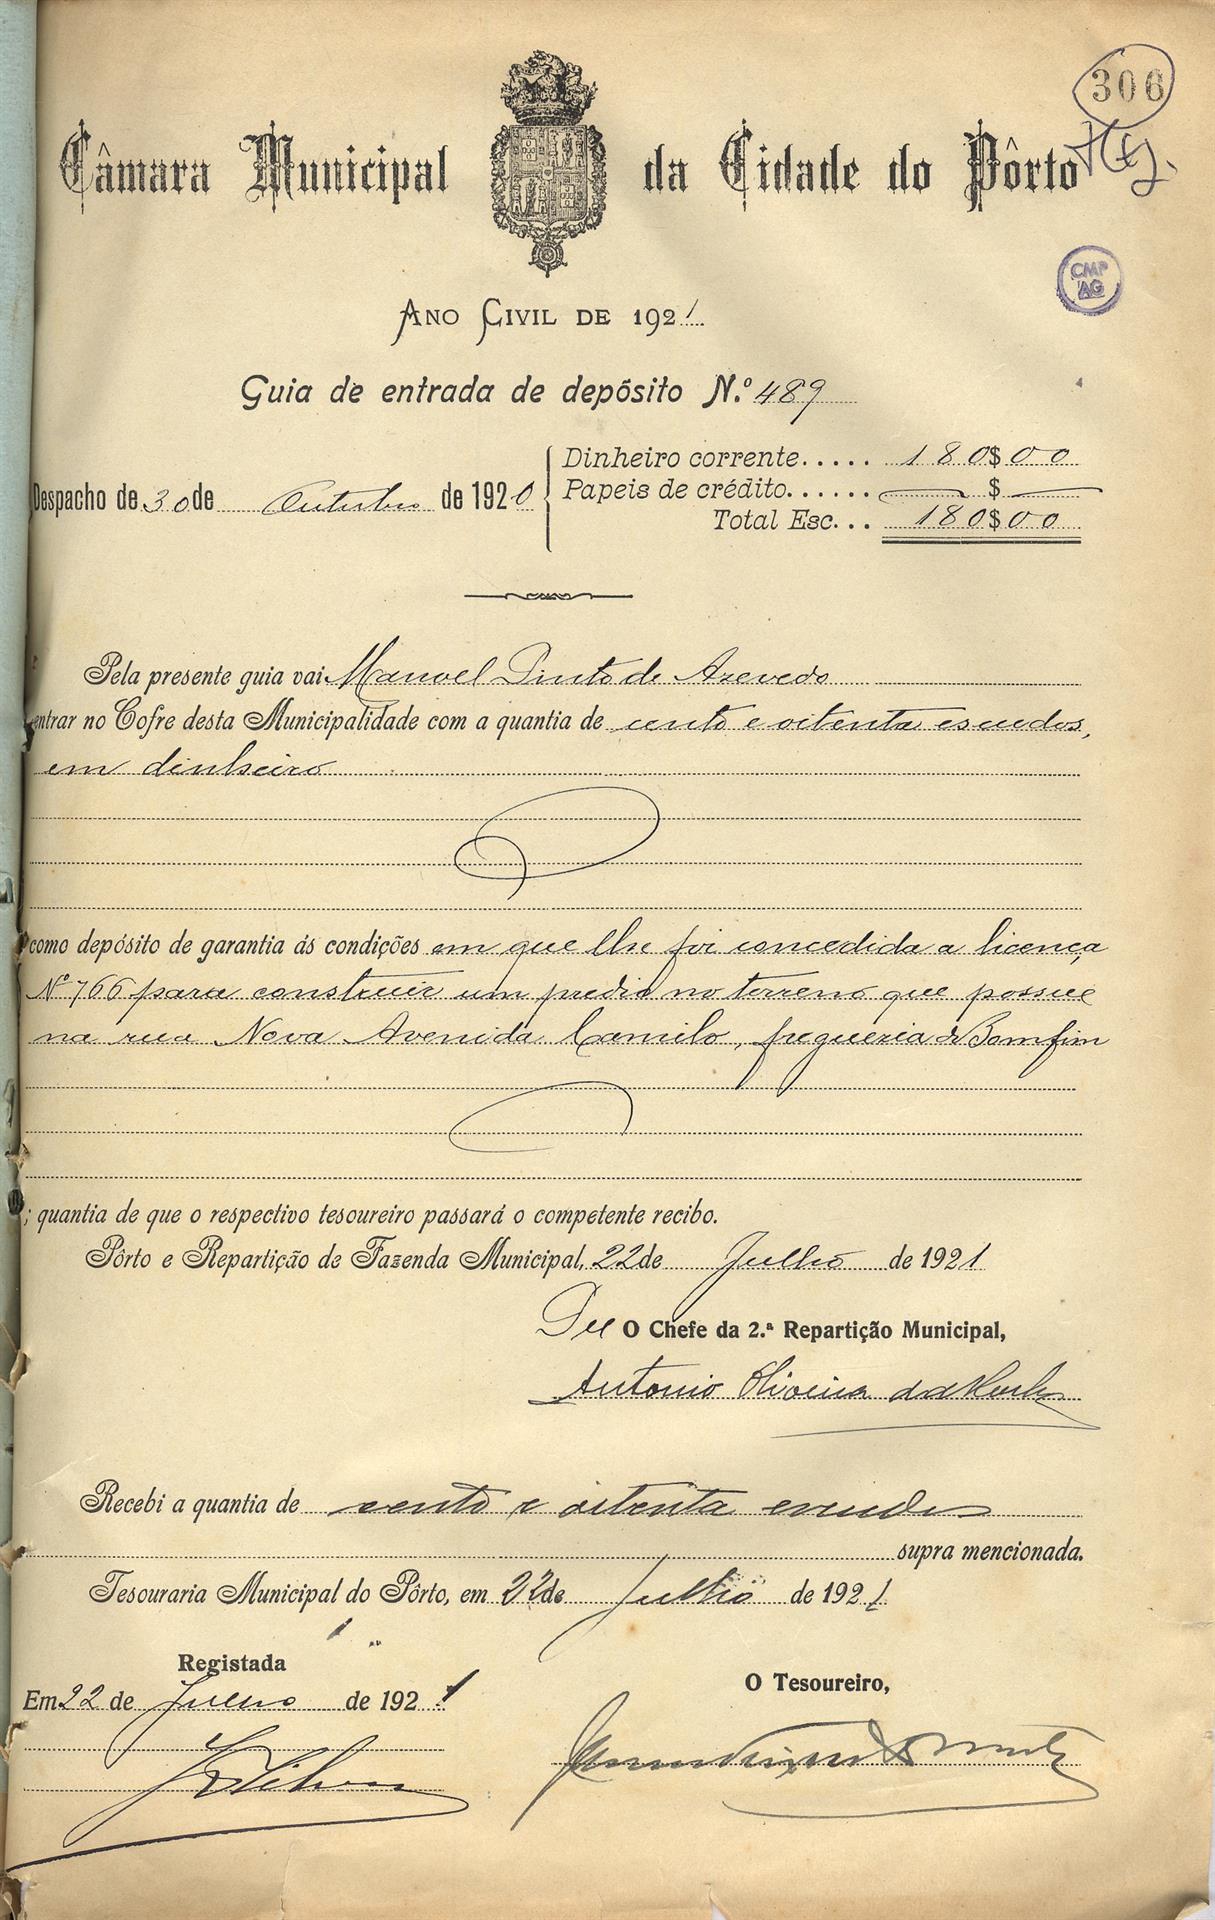 306
Câmara Municipal da Cidade do Pôrto
CMP
AG
ANO CIVIL DE 1921.
Guia de entrada de depósito N.º 489
Dinheiro corrente..... 180$00
Despacho de 30 de Outubro de 1920 Papeis de crédito...... — $ —
Total Esc... 180$00
Pela presente guia vai Manoel Pinto de Azevedo
entrar no Cofre desta Municipalidade com a quantia de cento e oitenta escudos,
em dinheiro
como depósito de garantia ás condições em que lhe foi concedida a licença
Nº 766 para construir um predio no terreno que possue
na rua Nova Avenida Camilo, freguezia do Bomfim
; quantia de que o respectivo tesoureiro passará o competente recibo.
Pôrto e Repartição de Fazenda Municipal, 22 de Julho de 1921
O Chefe da 2.ª Repartição Municipal,
Antonio Oliveira
Recebi a quantia de cento e oitenta escudos
supra mencionada.
Tesouraria Municipal do Pôrto, em 22 de Julho de 1921
Registada
O Tesoureiro,
Em 22 de Julho de 1921